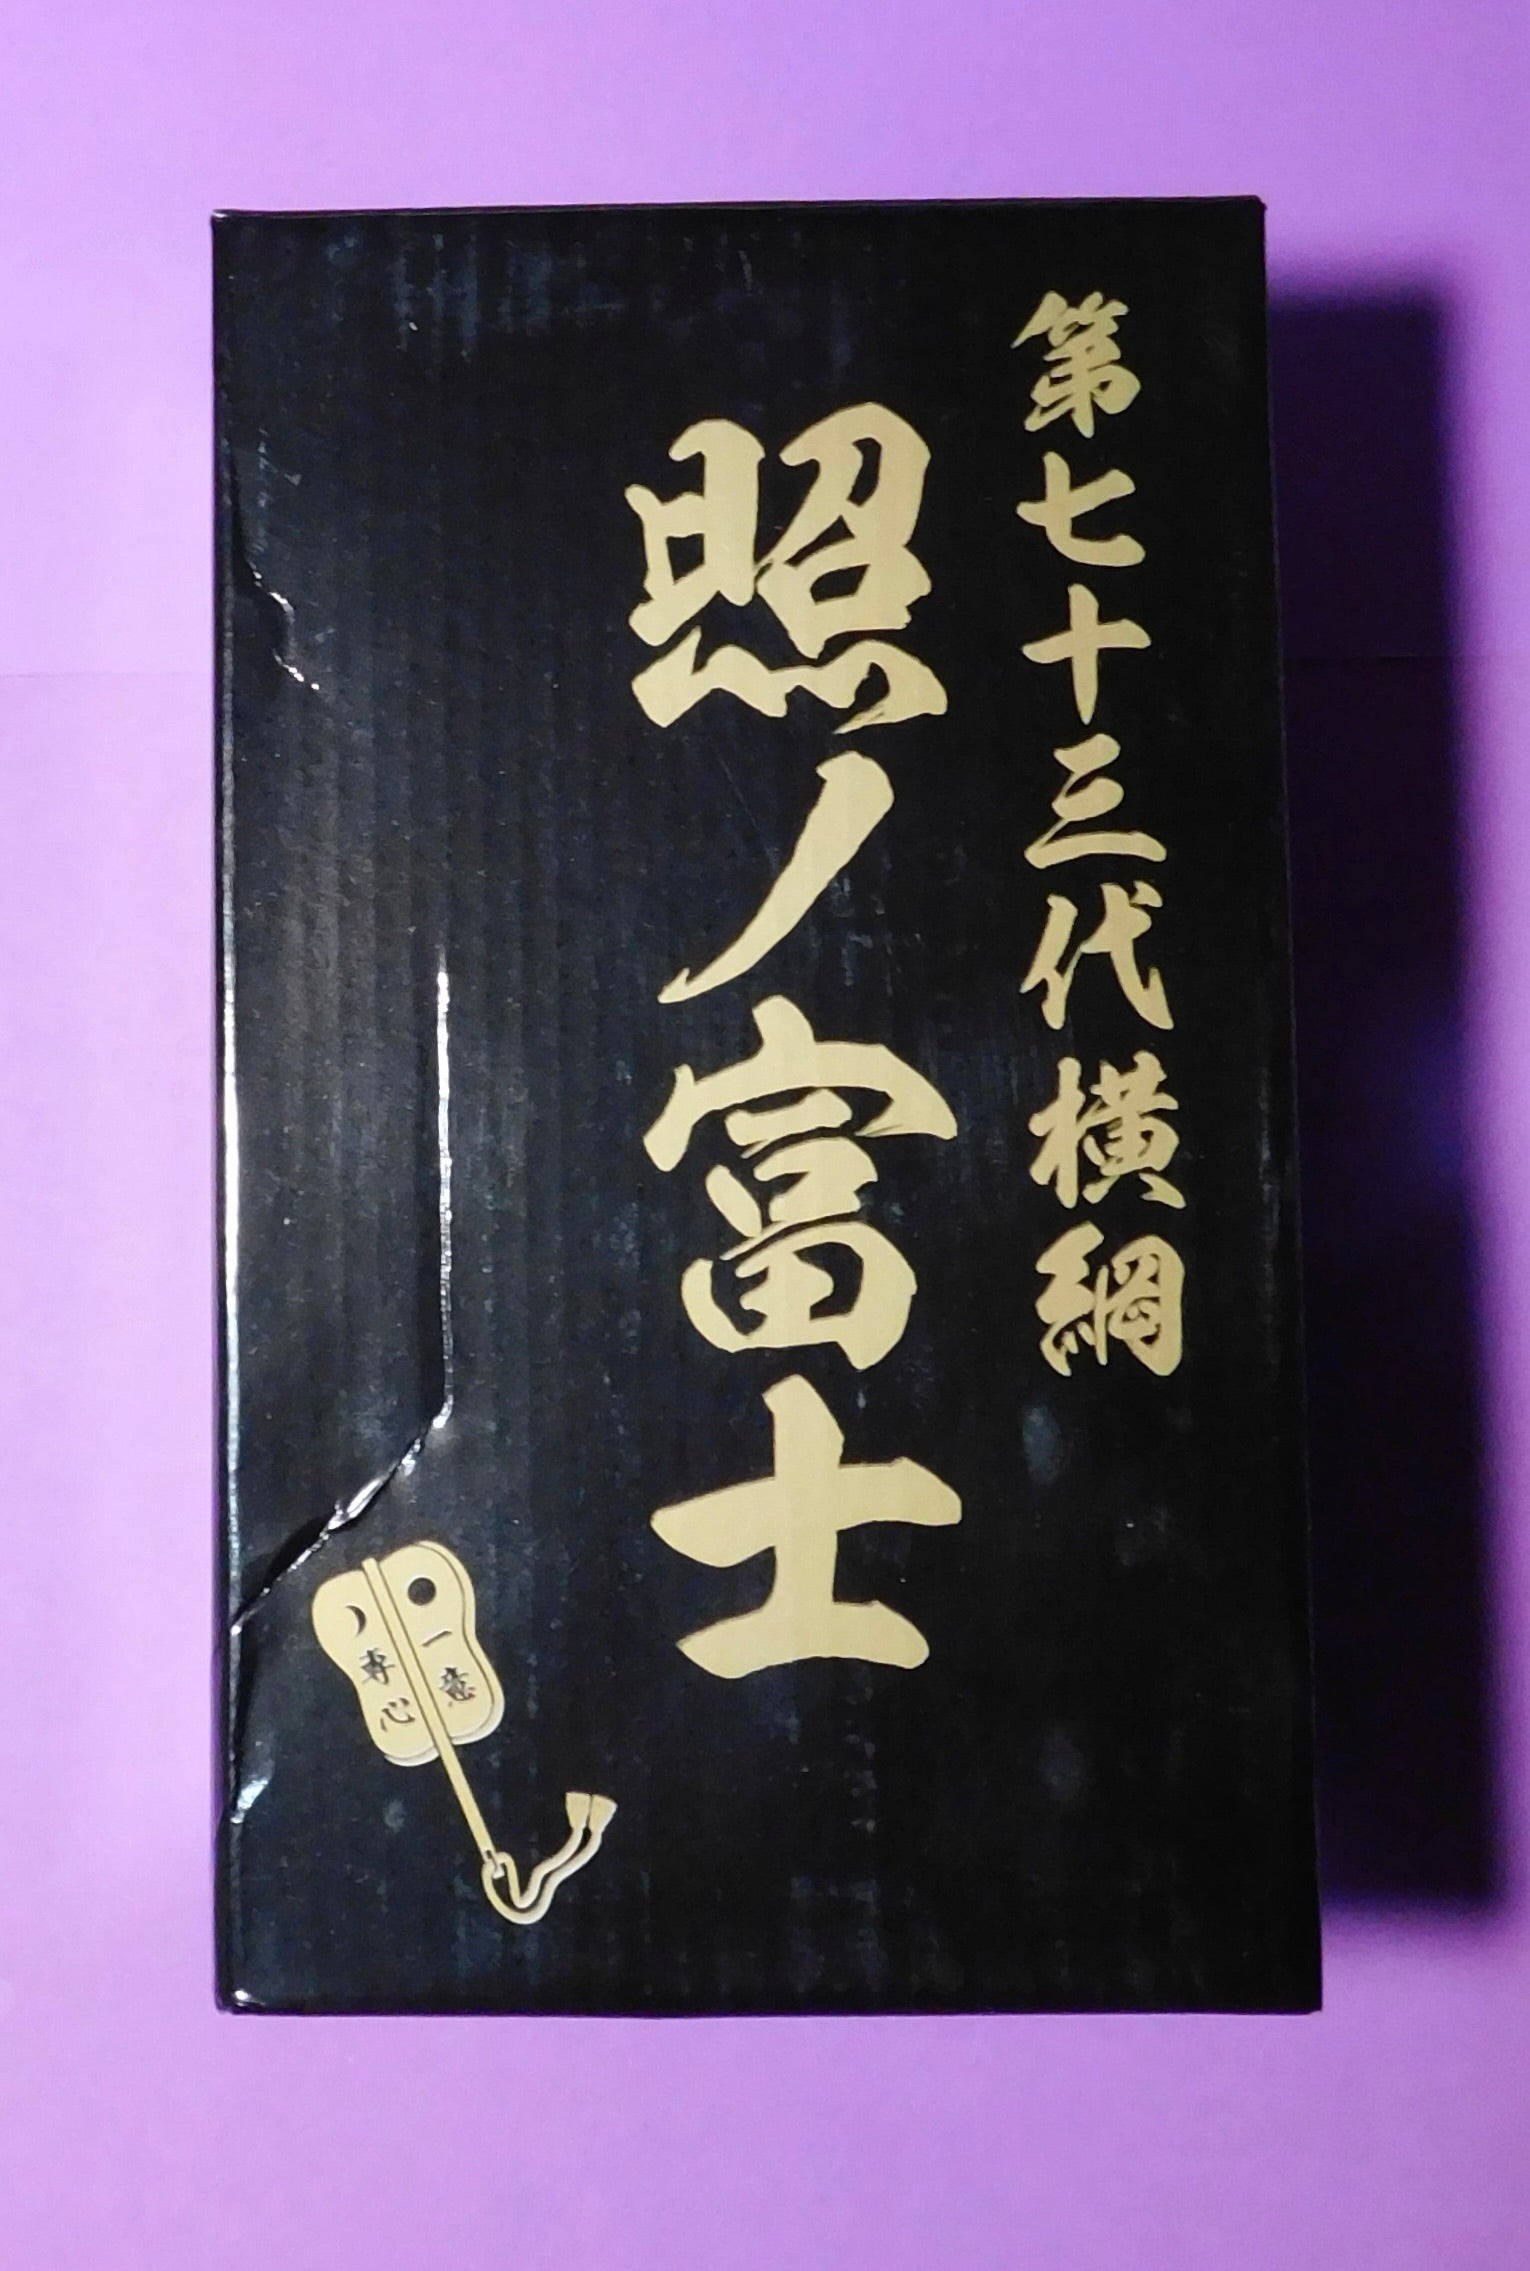 第七十三代横綱
照ノ富士
一意
専心